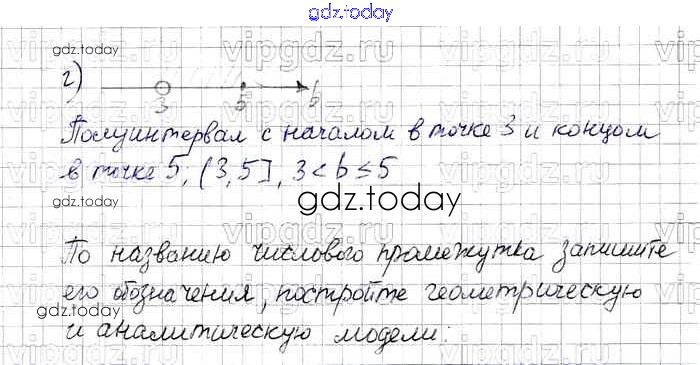 gdz.today
gdz.today
vipgdz.ru
г)
3 5 b
Полуинтервал с началом в точке 3 и концом
в точке 5, (3,5], 3 < b ≤ 5
gdz.today
gdz.today
По названию числового промежутка запишите
его обозначения, постройте геометрическую
gdz.today
и аналитическую модели: